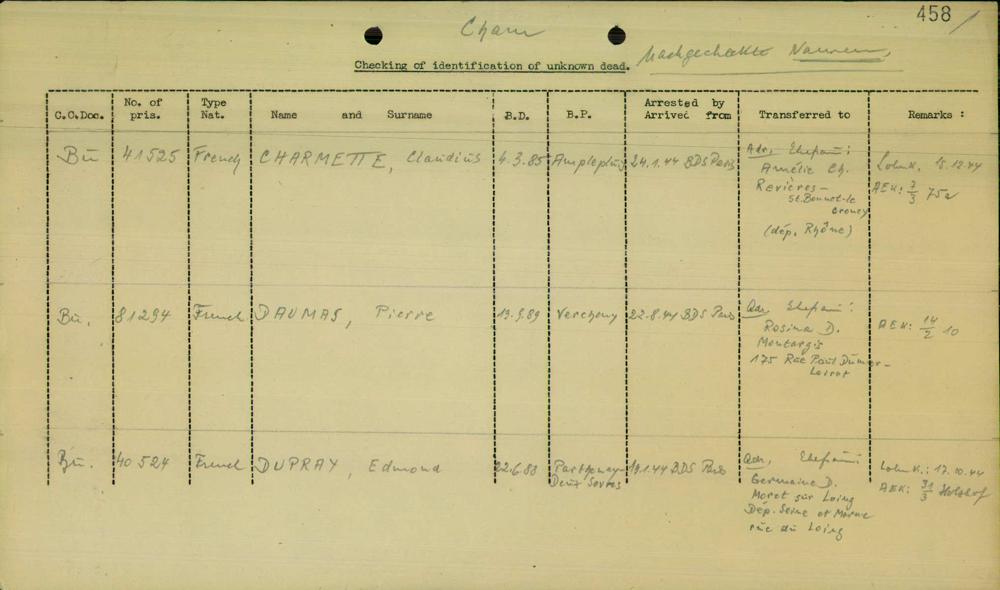 458
Cham
Nachgecheckte Nummern,
Checking of identification of unknown dead.
C.C.Doc. No. of pris. Type Nat. Name and Surname B.D. B.P. Arrested by Arrived from Transferred to Remarks :
Bu 41525 French CHARMETTE, Claudius 4.3.85 Amplepuis 24.1.44 BDS Paris Adr. Ehefrau:
Amélie Ch.
Revières-
St. Bonnet-le
(dép. Rhône)
Lohnk. 15.12.44
AEK: 7/3 75a
Bu. 81294 French DAUMAS, Pierre 19.9.89 Vercheny 22.8.44 BDS Paris Adr Ehefrau:
Rosina D.
Montargis
175 Rue Paul Dumer-
Loiret
AEK: 14/2 10
Bu. 40524 French DUPRAY, Edmond 22.6.88 Parthenay-
Deux Sevres
19.1.44 BDS Paris Adr. Ehefrau
Germaine D.
Moret sur Loing
Dép. Seine et Marne
rue du Loing
Lohnk.: 17.10.44
AEK: 31/3 Holzhof